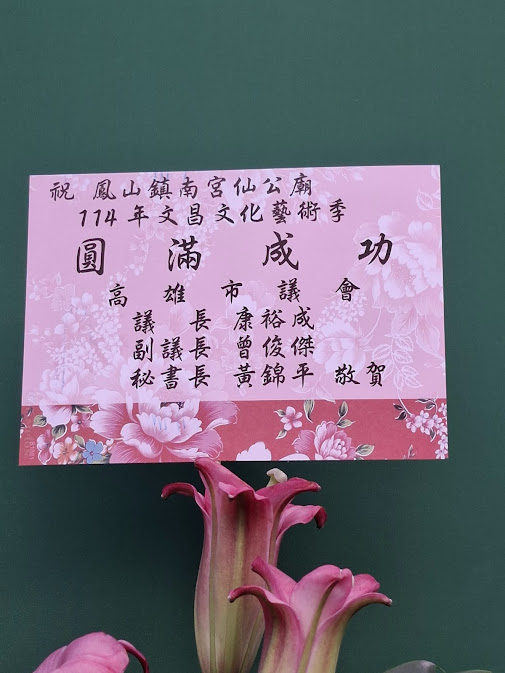 祝 鳳山鎮南宮仙公廟
114年文昌文化藝術季
圓滿成功
高雄市議會
議長 康裕成
副議長 曾俊傑
秘書長 黃錦平 敬賀